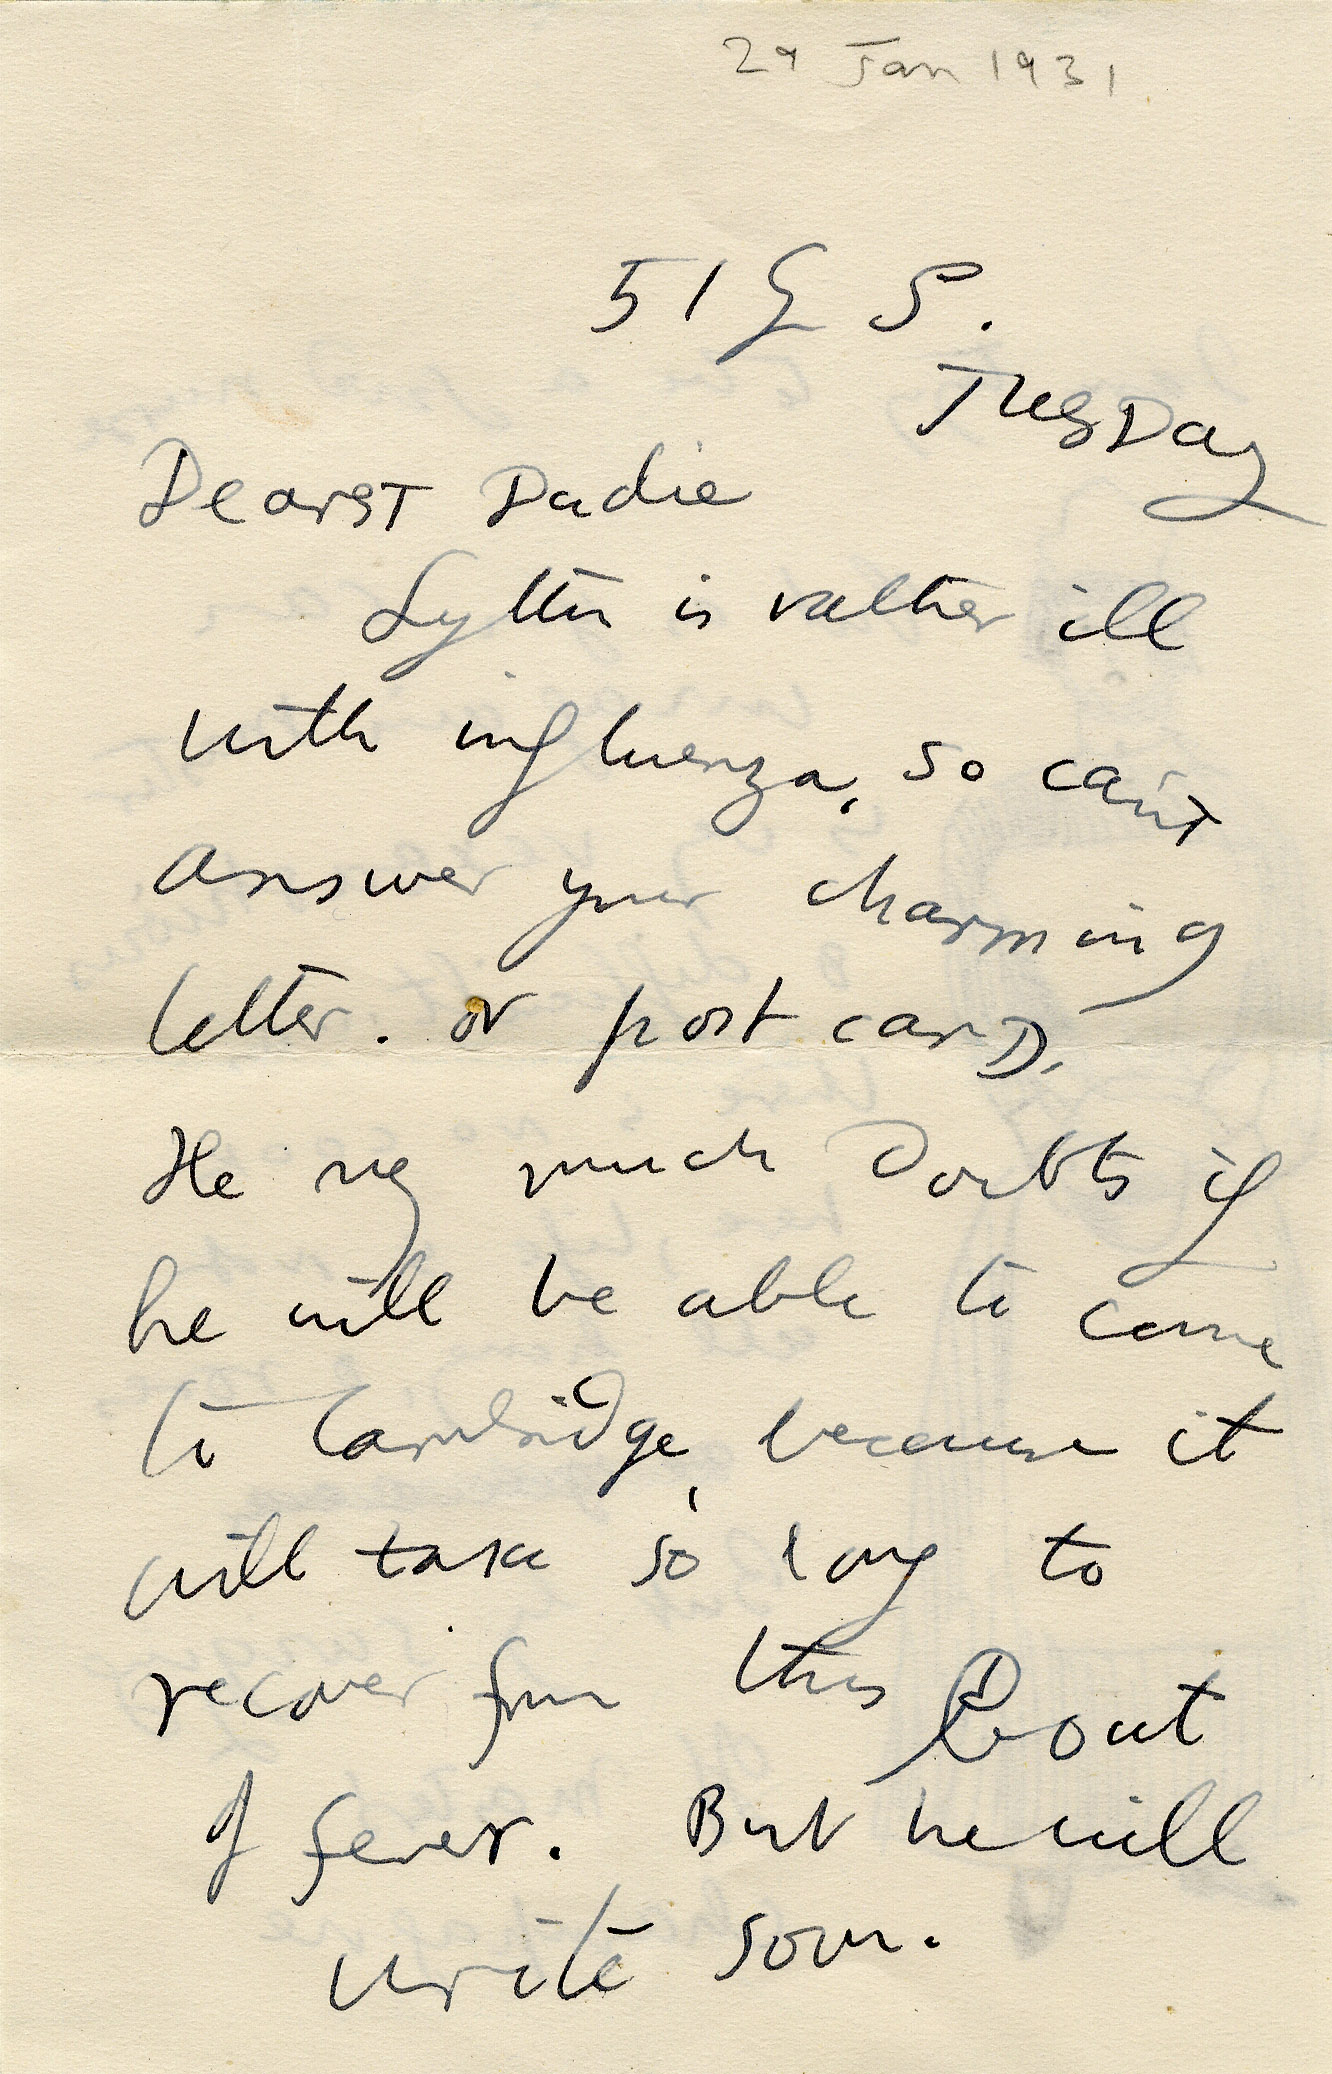 29 Jan 1931
51 G S.
Tuesday
Dearest Dadie
Lytton is rather ill
with influenza, so can't
answer your charming
letter. or post card.
He very much Doubts if
he will be able to come
to Cambridge, because it
will take so long to
recover from this Bout
of fever. But he will
write soon.